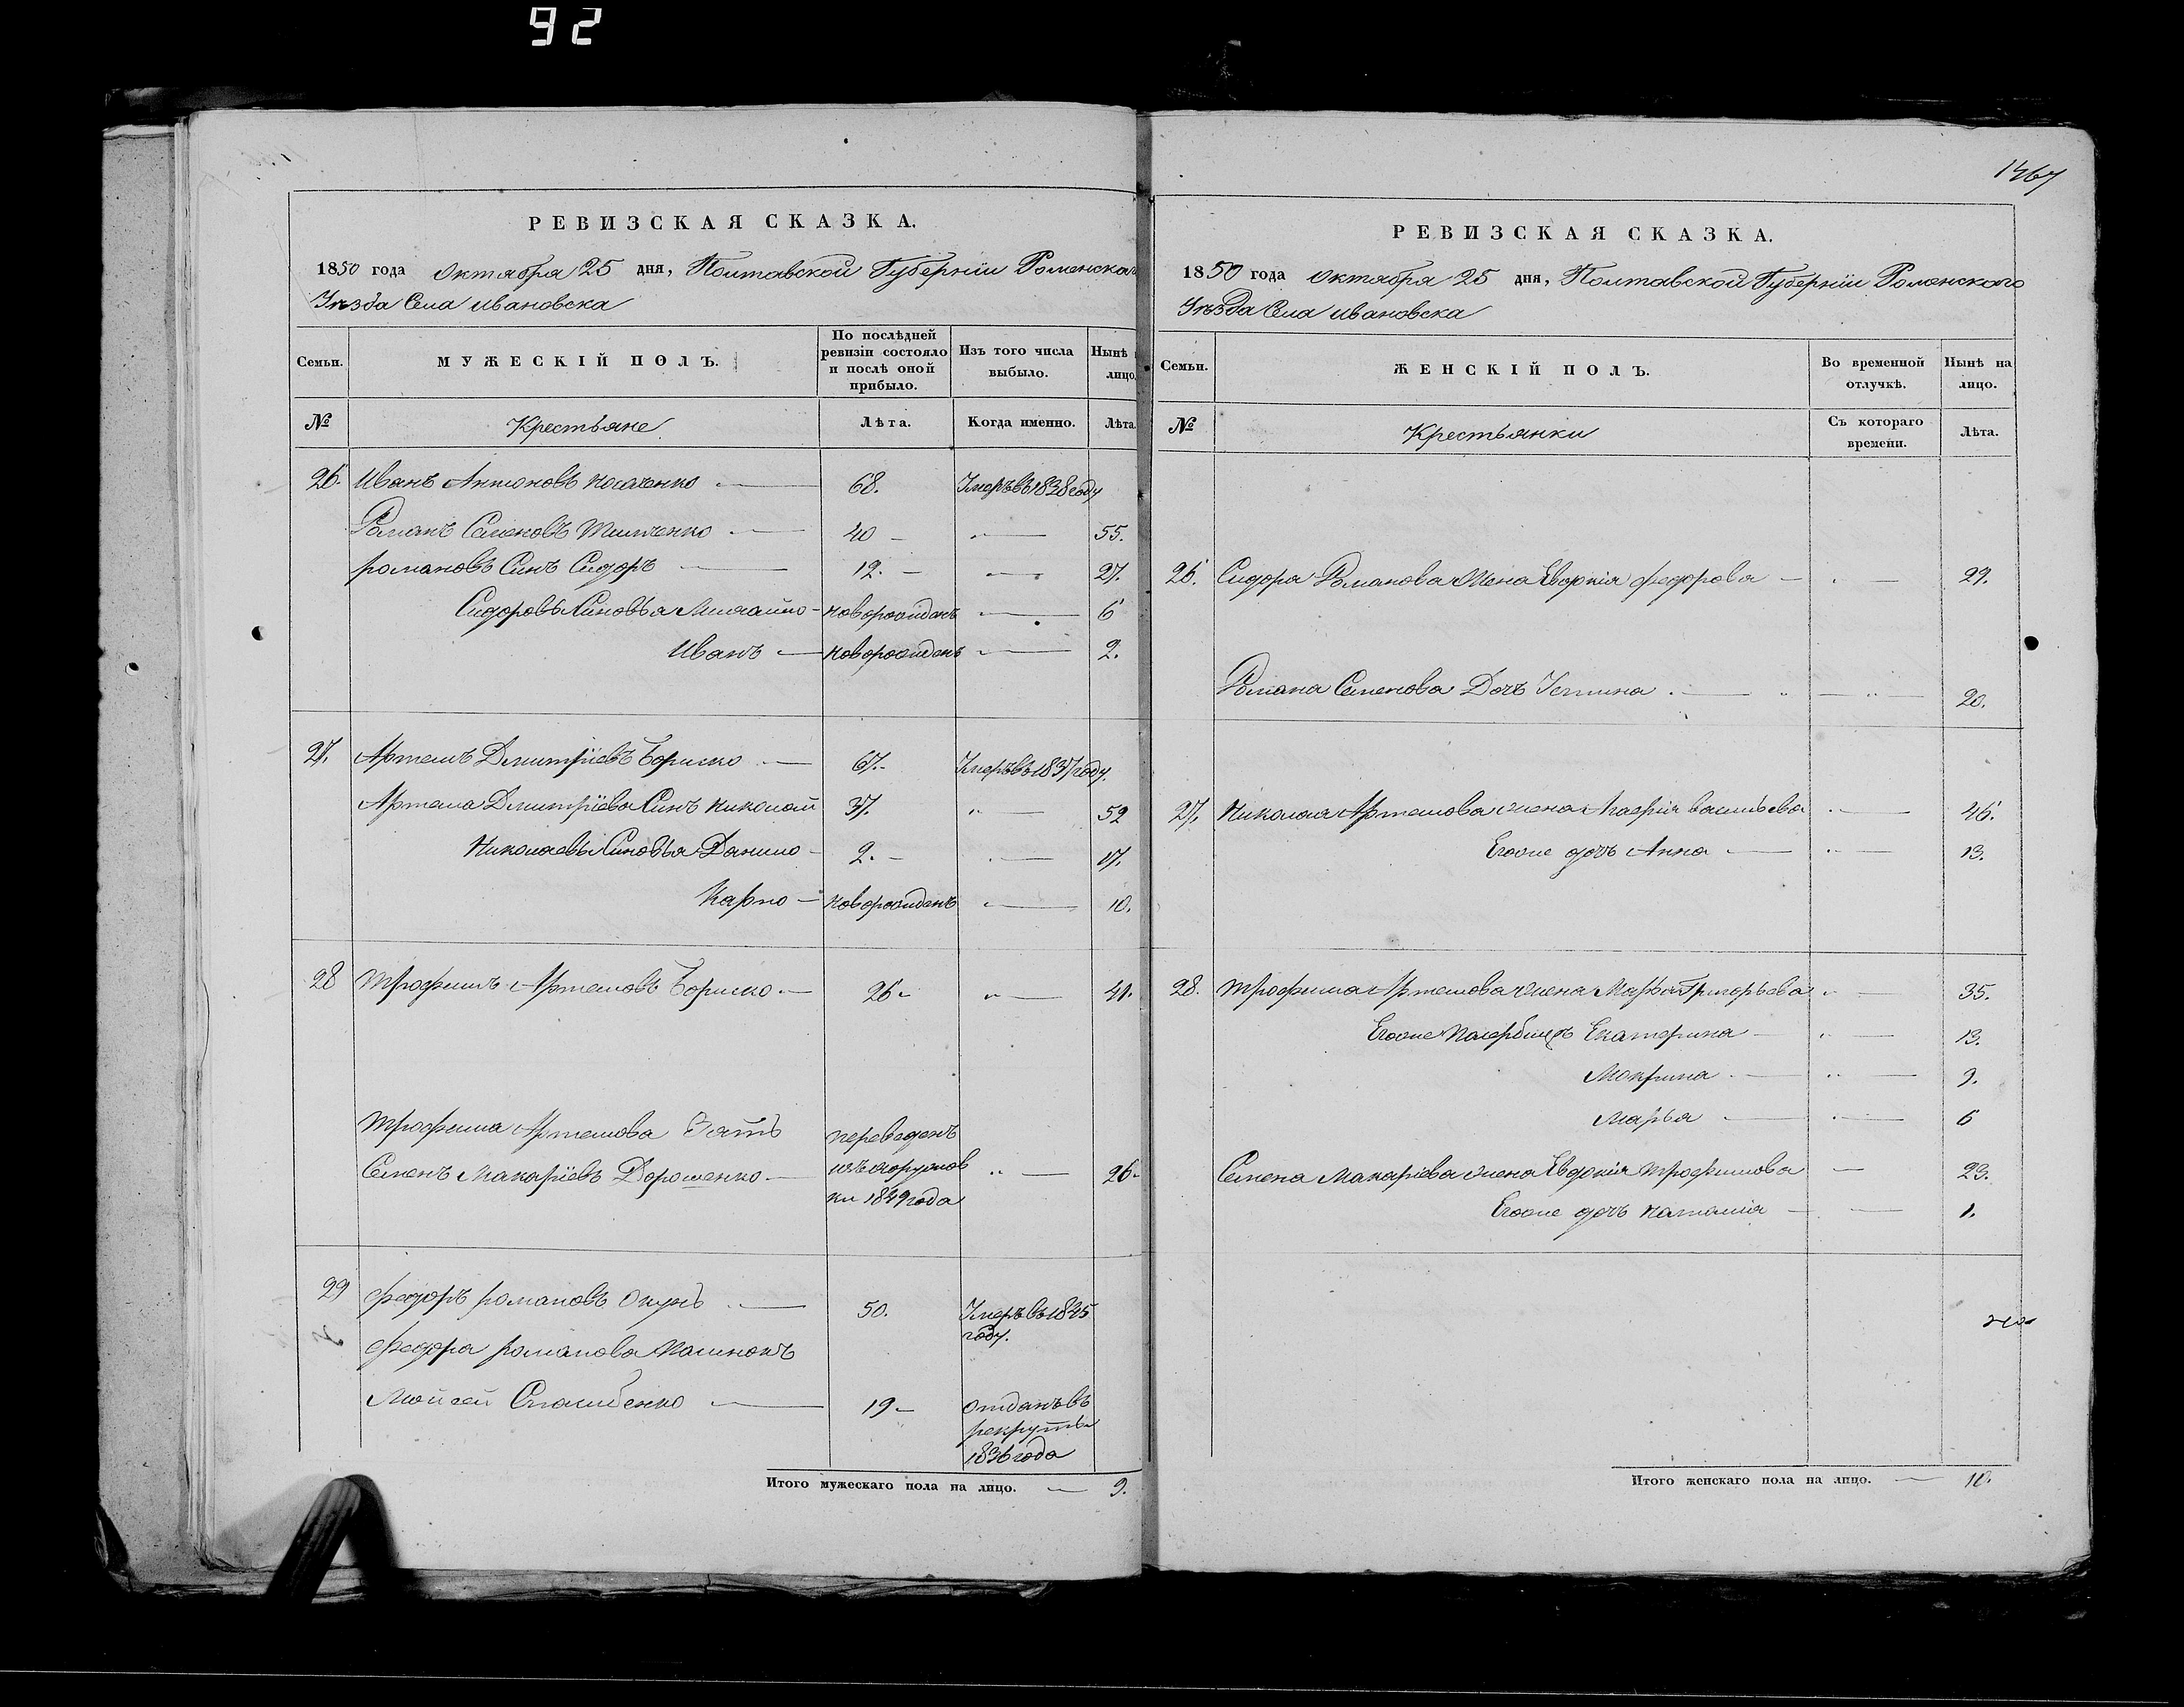 92
1467
РЕВИЗСКАЯ СКАЗКА.
1850 года Октября 25 дня, Полтавской Губерніи Роменска
Уѣзда Села Ивановска
Семьи. МУЖЕСКІЙ ПОЛЪ. По послѣдней ревизіи состояло и послѣ оной прибыло. Изъ того числа выбыло. Нынѣ лицо.
№ Крестьяне Лѣта. Когда именно. Лѣта
26. Иванъ Антоновъ 68. Умеръ въ 1838 году
Романъ Семеновъ Тимченко 40 55.
романовъ Синъ Сидоръ 12. 27.
Сидоровы Синовья Михайло новорожденъ 6
Иванъ новорожденъ 2.
27. Артемъ Дмитріевъ Бориско 67. Умеръ въ 1837 году.
Артема Дмитріева Синъ николай 37. 52
Николаевы Синовья Данило 2. 17.
Карпо новорожденъ 10.
28 Трофимъ Артемовъ Бориско 26 41.
Трофима Артемова Зять
Семенъ Макаріевъ Дорошенко переведенъ 26
ки 1849 года
29 федоръ романовъ Окунь 50. Умеръ въ 1845 году.
федора романова
Мойсей 19 отданъ въ рекруты 1836 года
Итого мужескаго пола на лицо. 9.
РЕВИЗСКАЯ СКАЗКА.
1850 года Октября 25 дня, Полтавской Губерніи Роменского
Уѣзда Села Ивановска
Семьи. ЖЕНСКІЙ ПОЛЪ. Во временной отлучкѣ. Нынѣ на лицо.
№ Крестьянки Съ котораго времени. Лѣта.
26. Сидора Романова Жена Евдокія федорова 27.
Романа Семенова Дочь Устина 20.
27. Николая Артемова жена Агафія васильева 46.
Егоже дочь Анна 13.
28. Трофима Артемова жена Марья Григорьева 35.
Егоже Екатерина 13.
Мокрина 9.
Марья 6
Семена Макаріева жена Евдокія Трофимова 23.
Егоже дочь наталія 1.
Итого женскаго пола на лицо. 10.